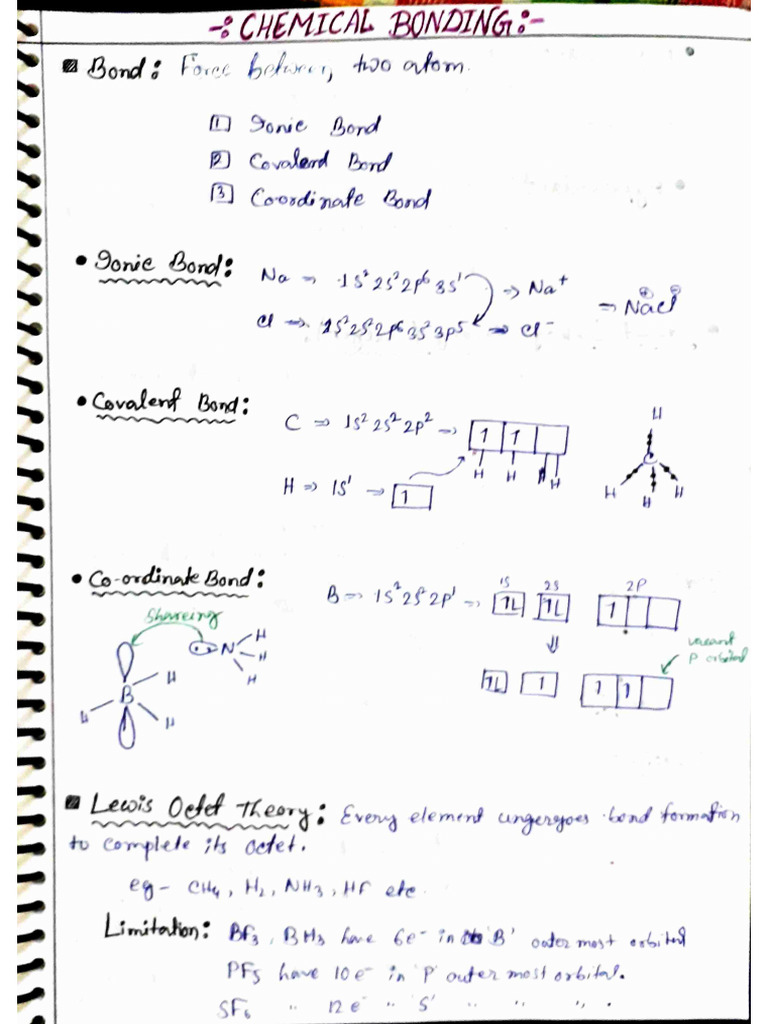 -: CHEMICAL BONDING:-
Bond: Force between two atom.
1 Ionic Bond
2 Covalend Bond
3 Co-ordinate Bond
• Ionic Bond: Na ⇒ 1s² 2s² 2p⁶ 3s¹ ⇒ Na⁺
⇒ Na⊕Cl⊖
Cl ⇒ 1s² 2s² 2p⁶ 3s² 3p⁵ ⇒ Cl⁻
• Covalent Bond:
C ⇒ 1s² 2s² 2p² ⇒ 1 1
H H H H
H ⇒ 1s¹ ⇒ 1
H
C
H H H
• Co-ordinate Bond: B ⇒ 1s² 2s² 2p¹ ⇒ 1L 1L 1
1s 2s 2p
Shareing
N H H H
⇓
vacant
P orbital
1L 1 1 1
B H H H
Lewis Octet Theory: Every element ungergoes bond formation
to complete its octet.
eg - CH₄, H₂, NH₃, HF etc.
Limitation: BF₃, BH₃ have 6e⁻ in 'B' outer most orbital
PF₅ have 10e⁻ in 'P' outer most orbital.
SF₆ " 12e⁻ " 'S' " " ".